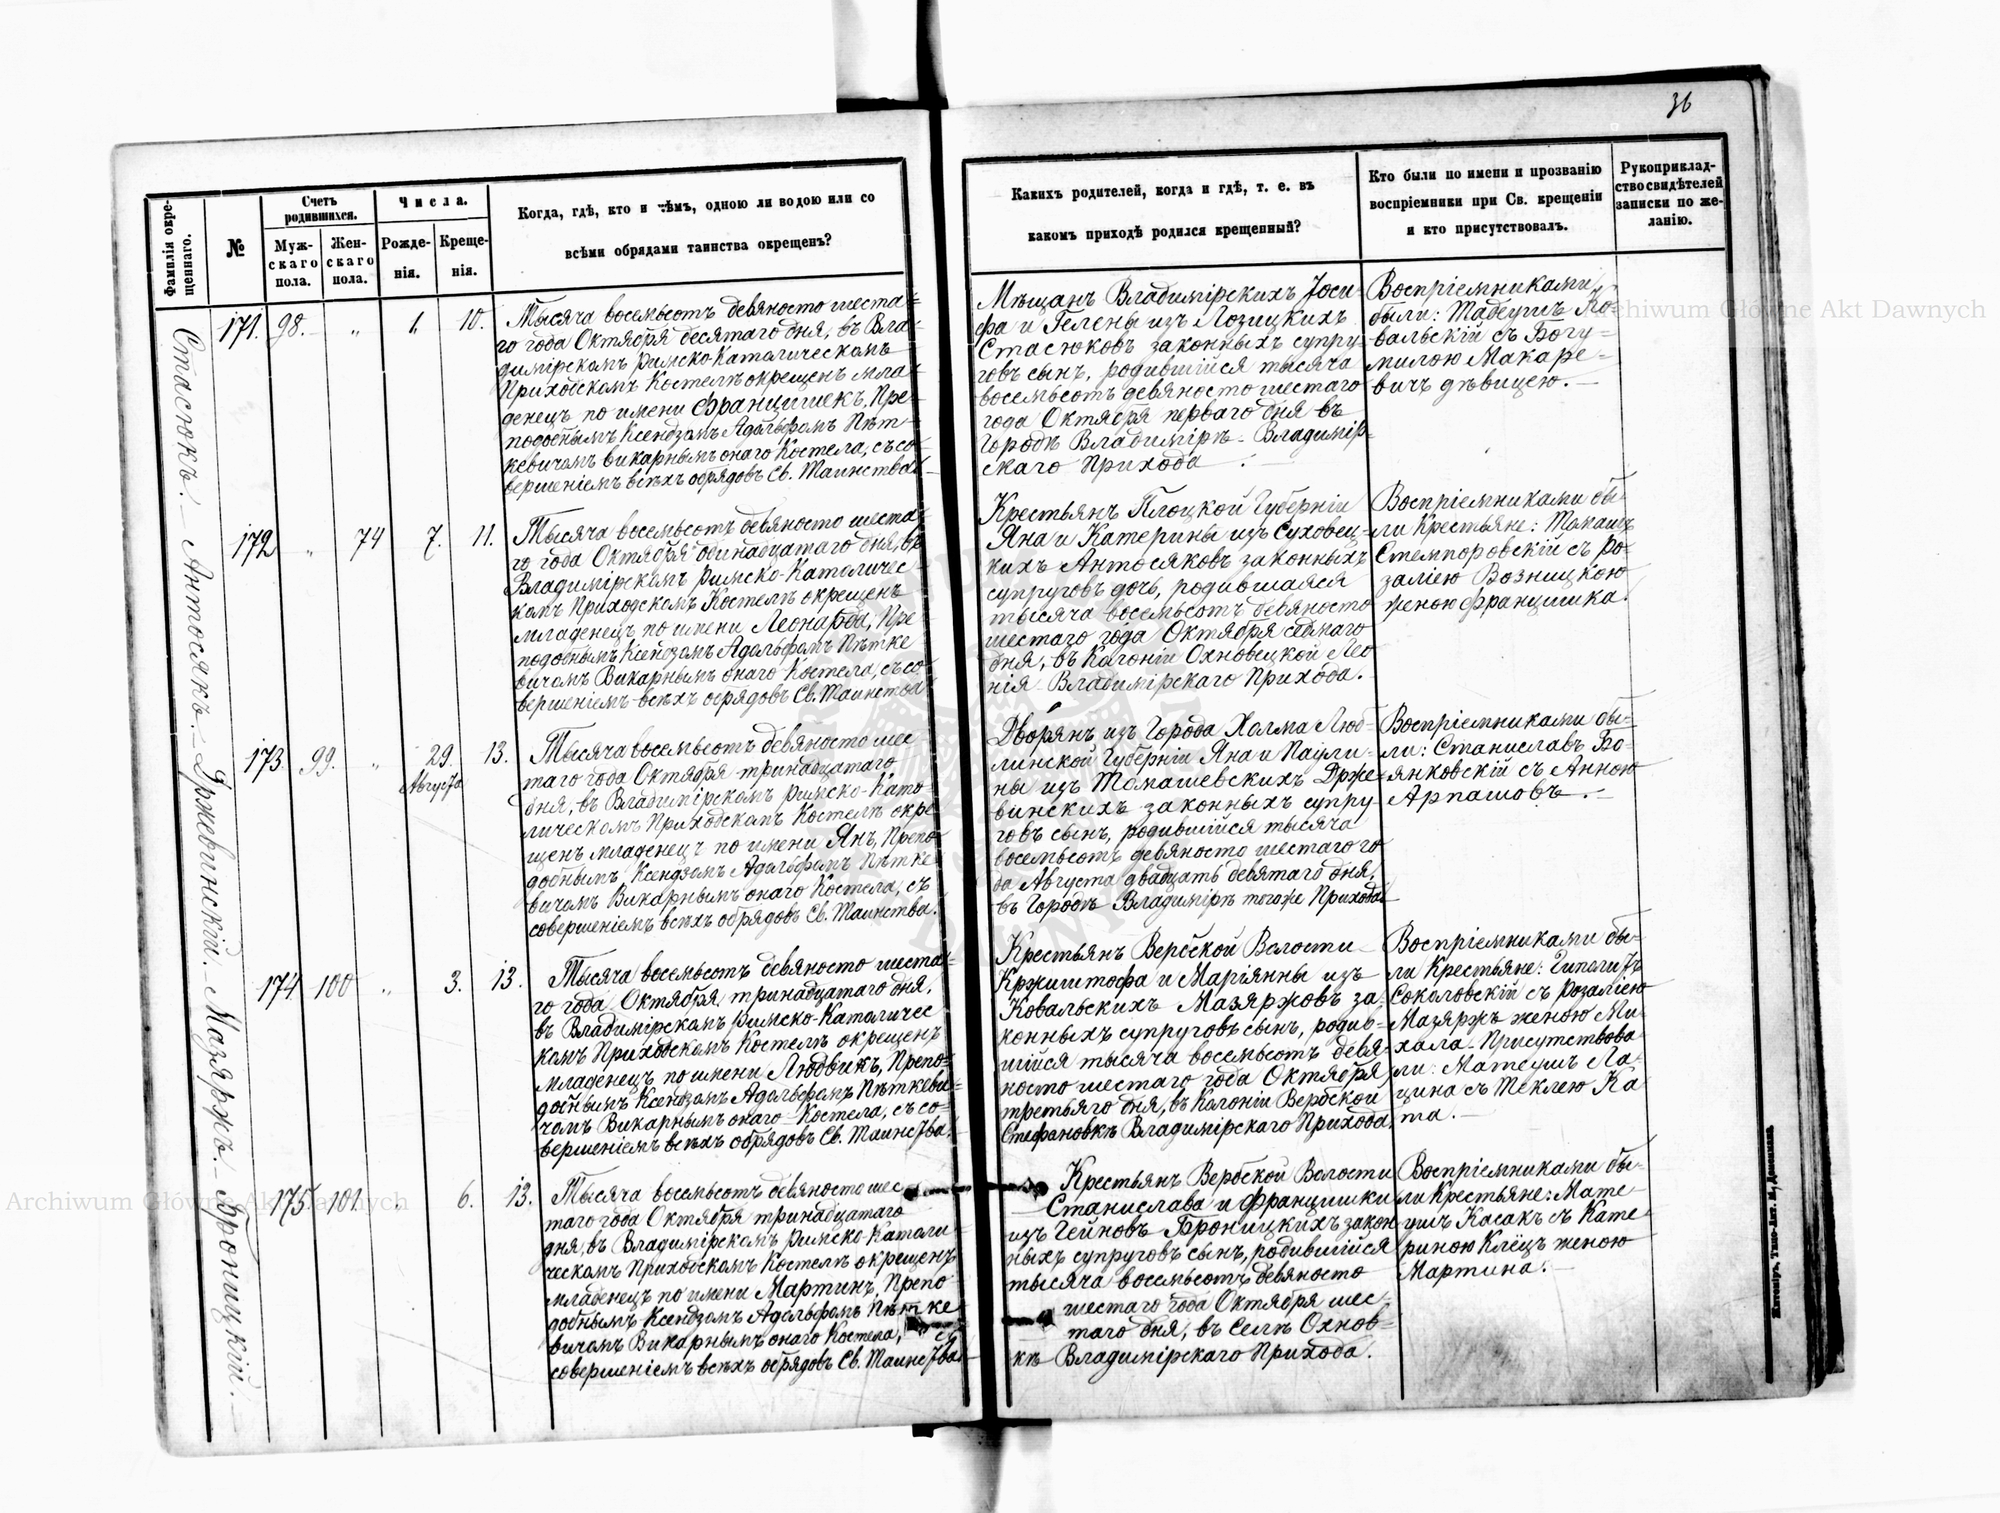 36
Фамилія окре-
щеннаго.
№
Счетъ
родившихся.
Муж-
скаго
пола.
Жен-
скаго
пола.
Числа.
Рожде-
нія.
Креще-
нія.
Когда, гдѣ, кто и чѣмъ, одною ли водою или со
всѣми обрядами таинства окрещенъ?
Какихъ родителей, когда и гдѣ, т. е. въ
какомъ приходѣ родился крещенный?
Кто были по имени и прозванію
воспріемники при Св. крещеніи
и кто присутствовалъ.
Рукоприклад-
ство свидѣтелей
записки по же-
ланію.
Стасюкъ. — Антосякъ. — Држевинскій. — Мазяржъ. — Броницкій. —
171. 98. — „ 1. 10.
Тысяча восемьсотъ девяносто шеста-
го года Октября десятаго дня, въ Вла-
димірскомъ Римско-Католическомъ
Приходскомъ Костелѣ окрещенъ мла-
денецъ по имени Францишекъ, Пре-
подобнымъ Ксендзомъ Адольфомъ Пѣт-
кевичомъ Викарнымъ онаго Костела, съ со-
вершеніемъ всѣхъ обрядовъ Св. Таинства.
Мѣщанъ Владимірскихъ Іоси-
фа и Гелены изъ Лозицкихъ
Стасюковъ законныхъ супру-
говъ сынъ, родившійся тысяча
восемьсотъ девяносто шестаго
года Октября перваго дня въ
Городѣ Владимірѣ - Владимір-
скаго Прихода.
Воспріемниками
были: Тадеушъ Ко-
вальскій съ Богу-
милою Макаре-
вичъ дѣвицею. —
172 „ 74 7. 11.
Тысяча восемьсотъ девяносто шеста-
го года Октября одинадцатаго дня, въ
Владимірскомъ Римско-Католичес-
комъ Приходскомъ Костелѣ окрещенъ
младенецъ по имени Леонарда, Пре-
подобнымъ Ксендзомъ Адольфомъ Пѣтке
вичомъ Викарнымъ онаго Костела, съ со-
вершеніемъ всѣхъ обрядовъ Св. Таинства.
Крестьянъ Плоцкой Губерніи
Яна и Катерины изъ Суховец-
кихъ Антосяковъ законныхъ
супруговъ дочь, родившаяся
тысяча восемьсотъ девяносто
шестаго года Октября седмаго
дня, въ Колоніи Охновецкой Лео
нія Владимірскаго Прихода.
Воспріемниками бы
ли Крестьяне: Томашъ
Стемпоровскій съ Ро-
заліею Возницкою
женою Францишка.
173. 99. „ 29. 13.
Августа
Тысяча восемьсотъ девяносто шес-
таго года Октября тринадцатаго
дня, въ Владимірскомъ Римско-Като-
лическомъ Приходскомъ Костелѣ окре-
щенъ младенецъ по имени Янъ, Препо-
добнымъ Ксендзомъ Адольфомъ Пѣтке
вичомъ Викарнымъ онаго Костела, съ
совершеніемъ всѣхъ обрядовъ Св. Таинства.
Дворянъ изъ Города Холма Люб-
линской Губерніи Яна и Паули-
ны изъ Томашевскихъ Држе-
винскихъ законныхъ супру-
говъ сынъ, родившійся тысяча
восемьсотъ девяносто шестаго го
да Августа двадцать девятаго дня,
въ Городѣ Владимірѣ тогоже Прихода.
Воспріемниками бы-
ли: Станиславъ Бо-
янковскій съ Анною
Арпашовъ. —
174 100 „ 3. 13.
Тысяча восемьсотъ девяносто шеста-
го года Октября тринадцатаго дня,
въ Владимірскомъ Римско-Католичес
комъ Приходскомъ Костелѣ окрещенъ
младенецъ по имени Людвикъ, Препо-
добнымъ Ксендзомъ Адольфомъ Пѣткеви-
чомъ Викарнымъ онаго Костела, съ со-
вершеніемъ всѣхъ обрядовъ Св. Таинства.
Крестьянъ Вербской Волости
Кржиштофа и Маріянны изъ
Ковальскихъ Мазяржовъ за-
конныхъ супруговъ сынъ, родив-
шійся тысяча восемьсотъ девя-
носто шестаго года Октября
третьяго дня, въ Колоніи Вербской
Стефановкѣ Владимірскаго Прихода.
Воспріемниками бы-
ли Крестьяне: Гиполитъ
Соколовскій съ Розаліею
Мазяржъ женою Ми
хала - Присутствова
ли: Матеушъ Ла-
цина съ Теклею Ка
та. —
175 101 „ 6. 13.
Тысяча восемьсотъ девяносто шес
таго года Октября тринадцатаго
дня, въ Владимірскомъ Римско-Католи
ческомъ Приходскомъ Костелѣ окрещенъ
младенецъ по имени Мартинъ, Препо
добнымъ Ксендзомъ Адольфомъ Пѣтке
вичомъ Викарнымъ онаго Костела, съ
совершеніемъ всѣхъ обрядовъ Св. Таинства.
Крестьянъ Вербской Волости
Станислава и Францишки
изъ Гейновъ Броницкихъ закон
ныхъ супруговъ сынъ, родившійся
тысяча восемьсотъ девяносто
шестаго года Октября шес-
таго дня, въ Селѣ Охнов-
кѣ Владимірскаго Прихода.
Воспріемниками бы-
ли Крестьяне: Мате-
ушъ Касакъ съ Кате
риною Клёцъ женою
Мартина. —
Archiwum Główne Akt Dawnych
Archiwum Główne Akt Dawnych